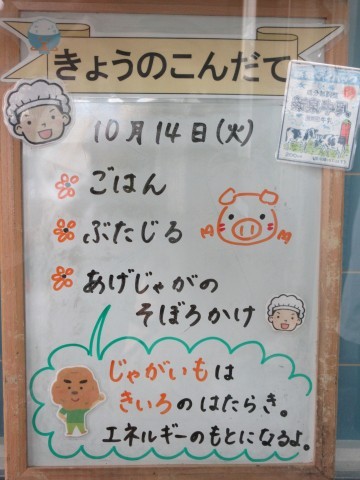 きょうのこんだて
10月14日(火)
ごはん
ぶたじる
あげじゃがの
そぼろかけ
じゃがいもは
きいろのはたらき。
エネルギーのもとになるよ。